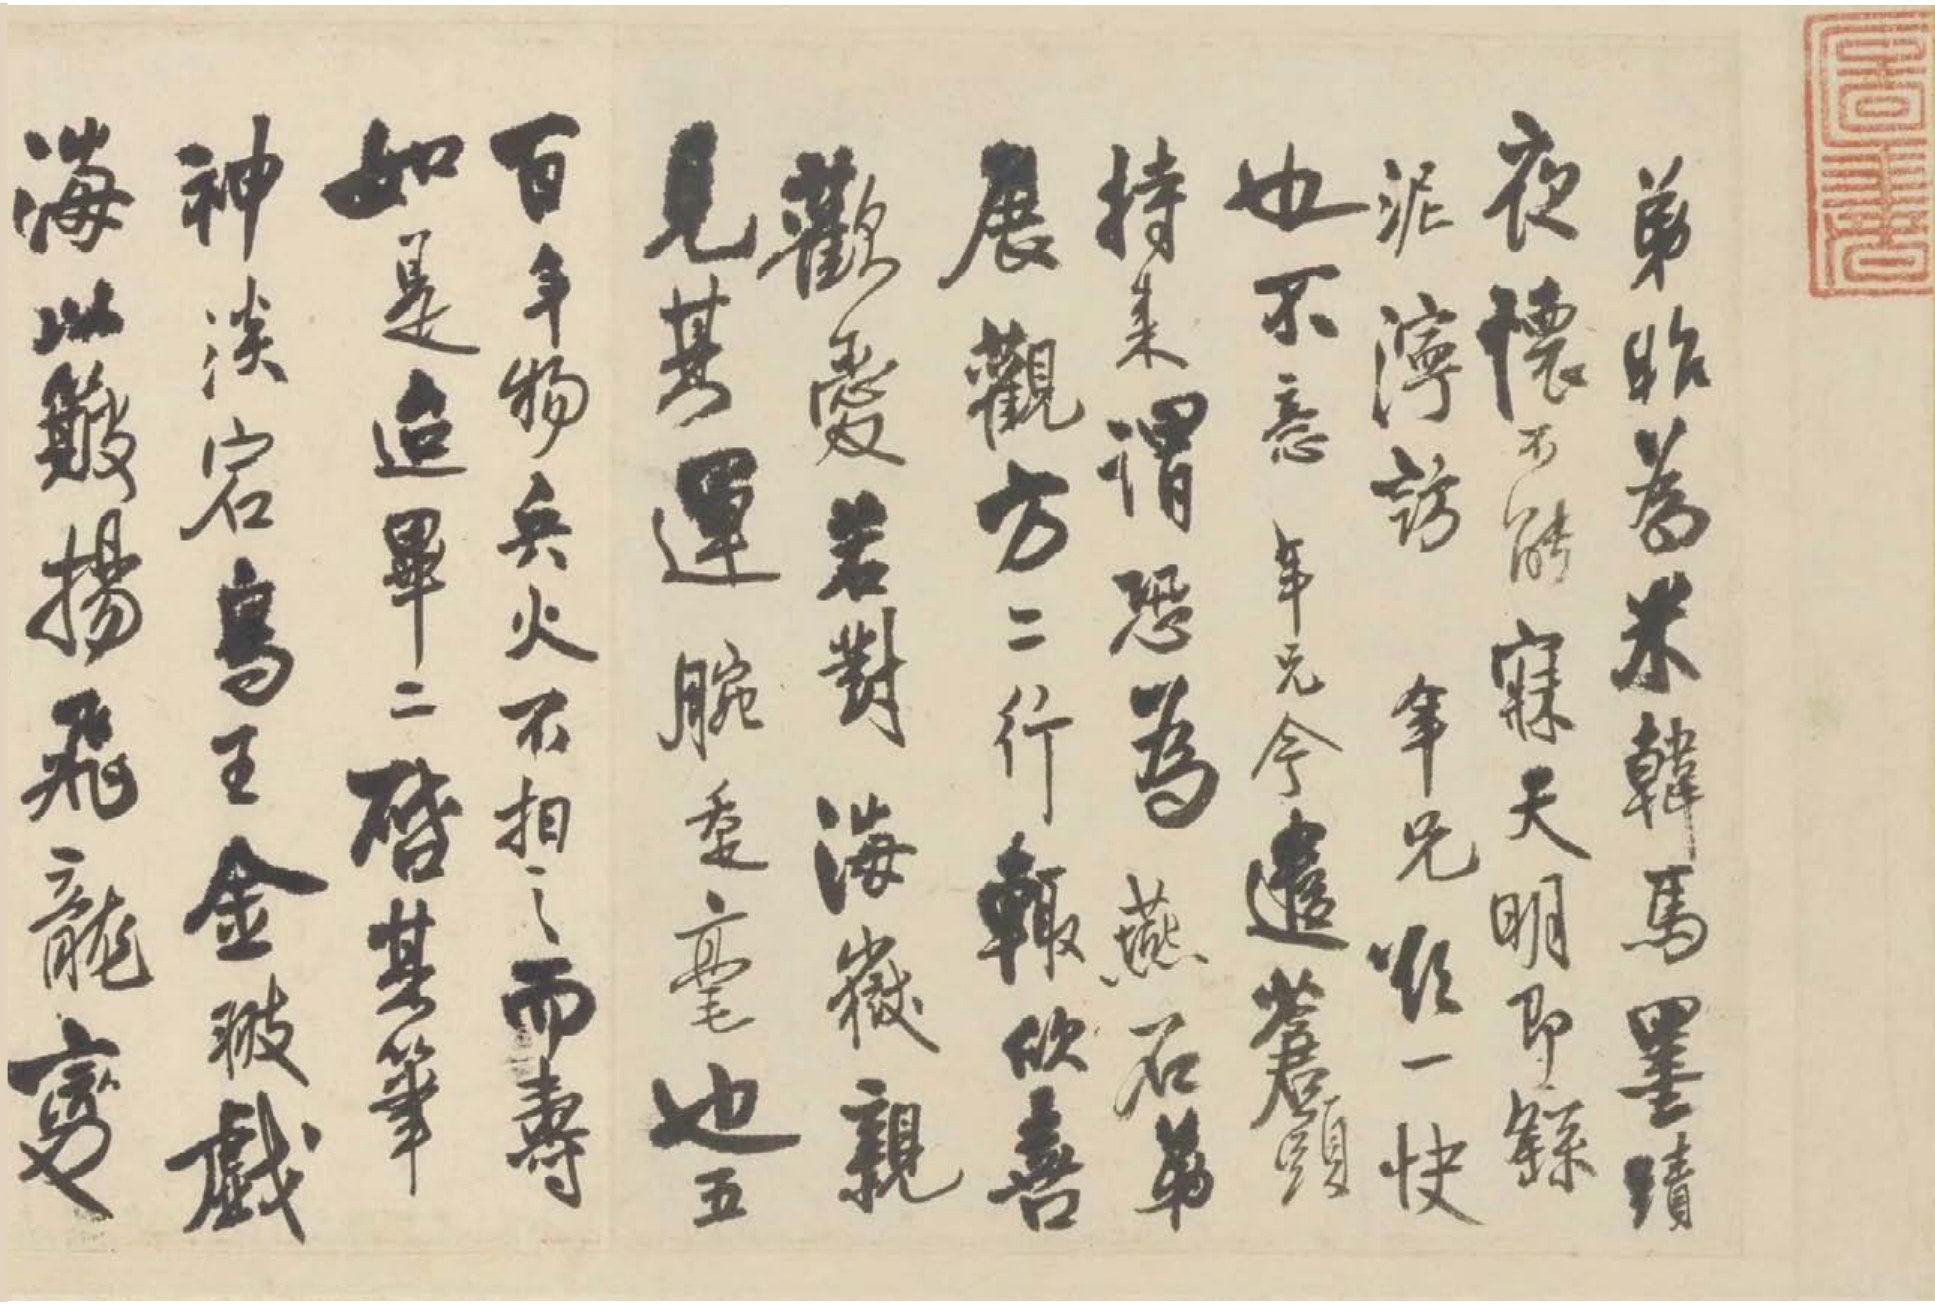 弟昨為米韓馬墨蹟
夜懷不能寐天明即
泥濘訪年兄欣一快
也不意年兄今遣蒼頭
持来謂恐為燕石弟
展觀方二行輒欣喜
歡愛若對海嶽親
見其運腕委毫也五
百年物兵火不相之而壽
如是迨畢二啓其筆
神淡宕寫王金戲
海以簸揚飛龍變